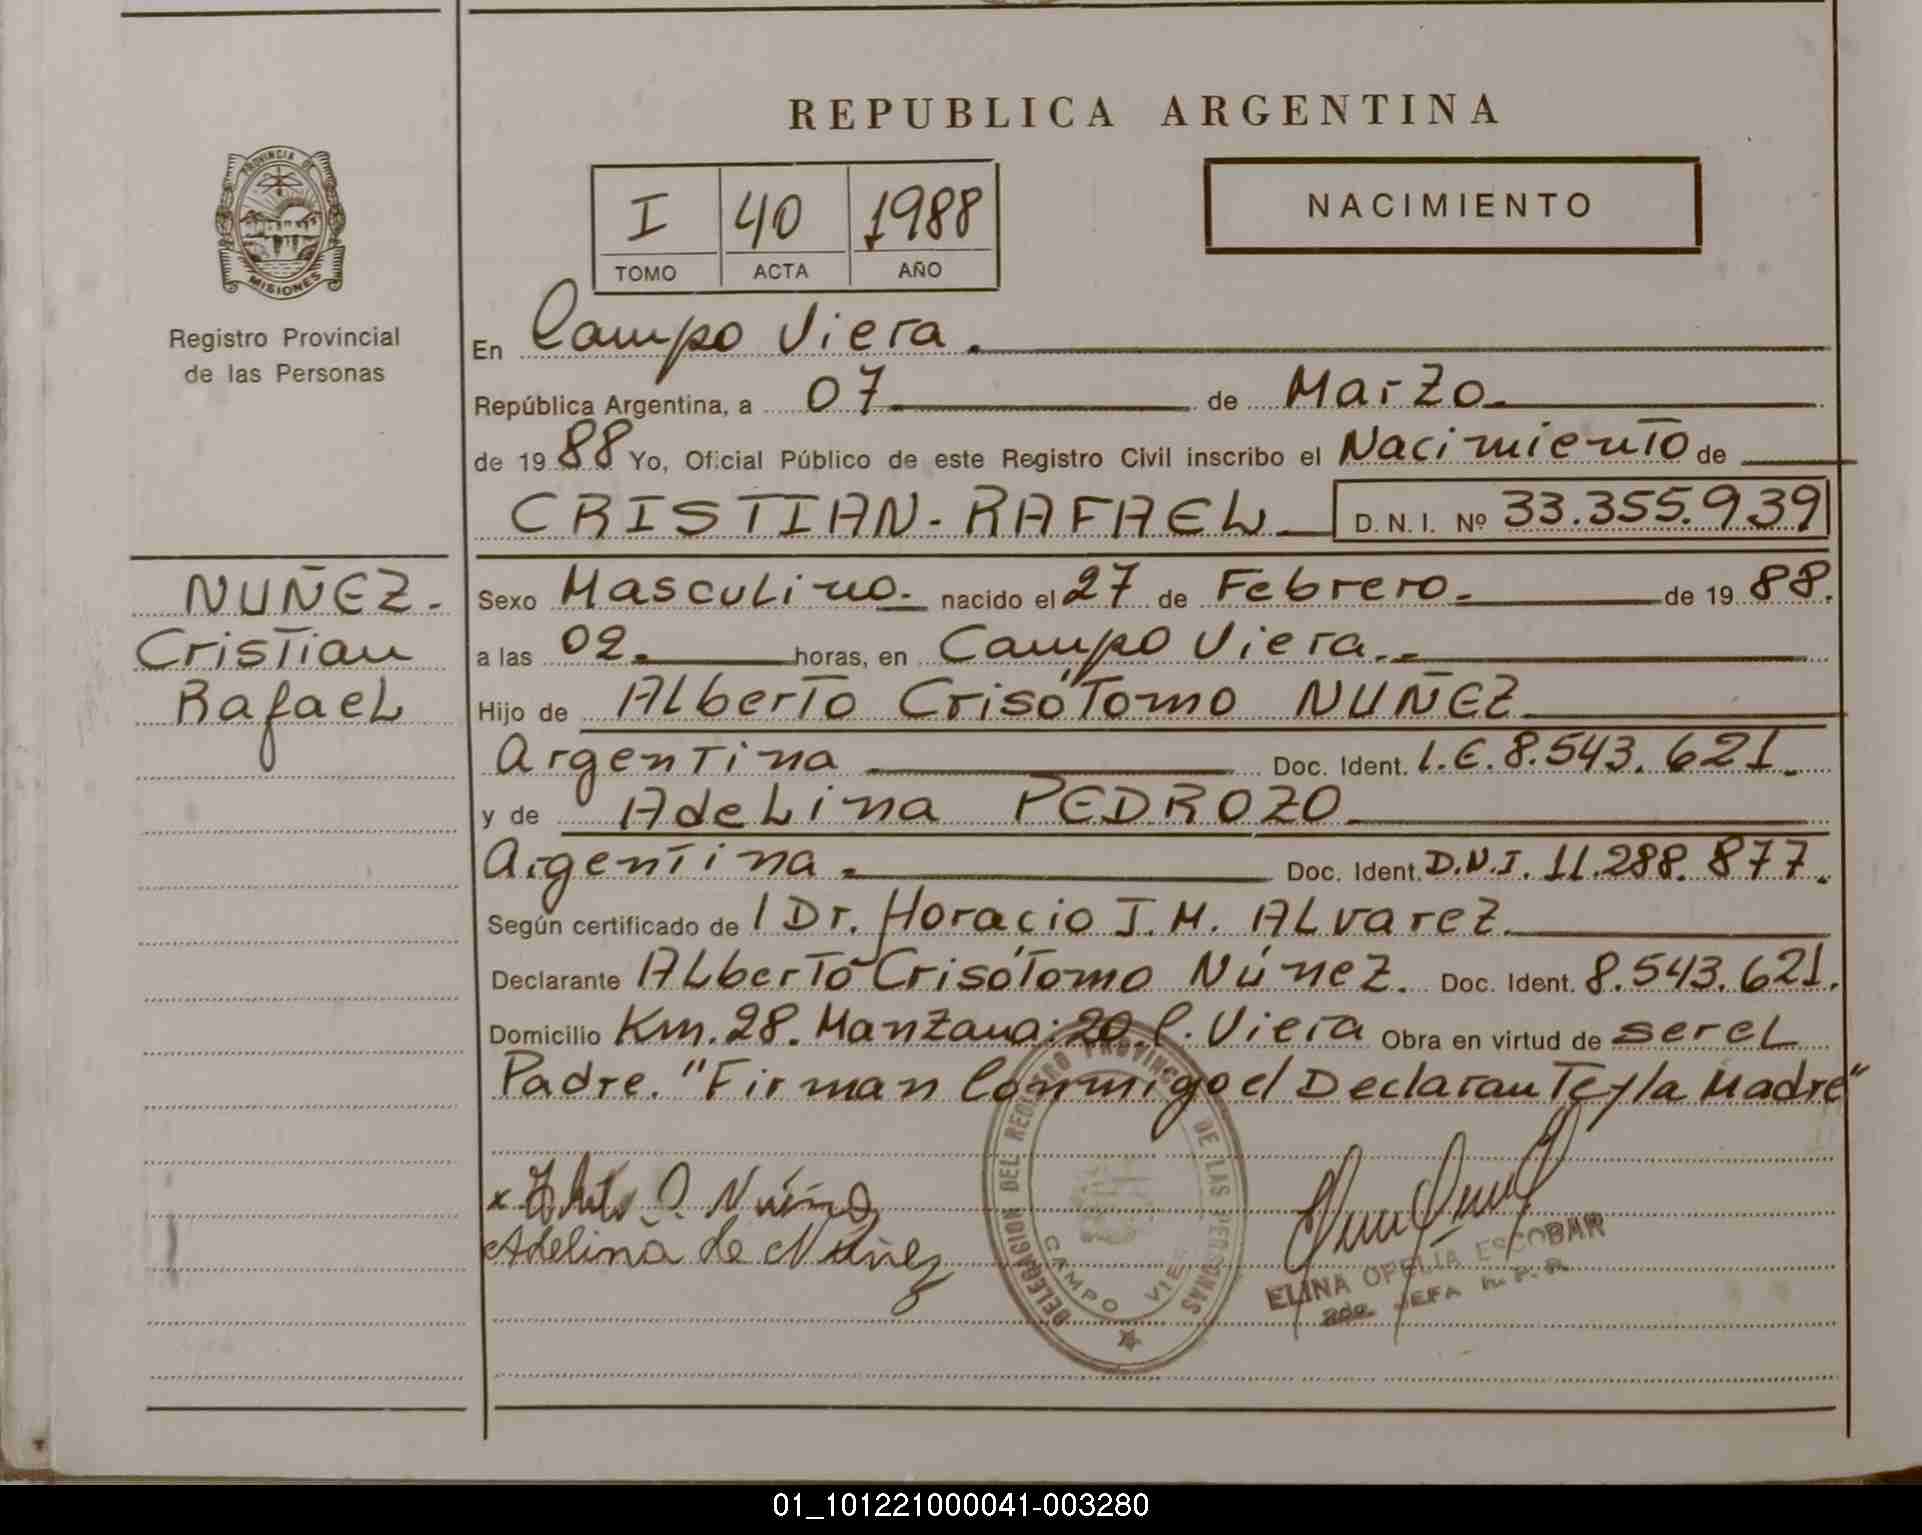 REPUBLICA ARGENTINA
PROVINCIA DE
MISIONES
Registro Provincial
de las Personas
I 40 1988
TOMO ACTA AÑO
NACIMIENTO
En Campo Viera.
República Argentina, a 07 de Marzo.
de 1988 Yo, Oficial Público de este Registro Civil inscribo el Nacimiento de
CRISTIAN-RAFAEL D. N. I. Nº 33.355.939
NUÑEZ.
Cristian
Rafael
Sexo Masculino. nacido el 27 de Febrero. de 1988.
a las 02. horas, en Campo Viera.
Hijo de Alberto Crisótomo NUÑEZ
Argentina Doc. Ident. L.E. 8.543.621.
y de Adelina PEDROZO.
Argentina. Doc. Ident. D.N.I. 11.288.877.
Según certificado de l Dr. Horacio J. M. Alvarez.
Declarante Alberto Crisótomo Núnez. Doc. Ident. 8.543.621.
Domicilio Km. 28. Manzana: 20. C. Viera Obra en virtud de ser el
Padre. "Firman Conmigo el Declarante y la Madre"
DELEGACION DEL REGISTRO PROVINCIAL DE LAS PERSONAS
CAMPO VIERA
Adelina de Nuñez
ELINA OFELIA ESCOBAR
2da. JEFA
01_101221000041-003280